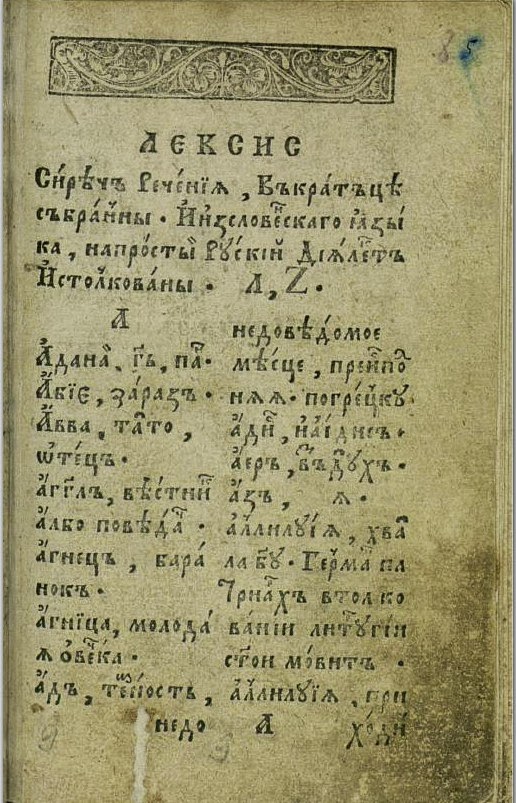 ЛЕКСИС
Си́рѣчъ Рече́нїѧ , Въкра́тъцѣ
събра́нны · И҆и҆зслове́нⷭ҇каго ꙗ҆зы́
ка , напро́стыⷨ Ру́скїй Дїѧ́леⷦ҇тъ
И҆столко́ваны · Л , Z ·
А
А҆дана́ , гь҃ , паⷩ ·
А҆́бїє , за́разъ ·
А҆́вва , та́то ,
ѡ҆те́цъ ·
а҆́гг҃лъ , вѣ́стниⷦ
а҆́лбо повѣ́даⷱ ·
а҆́гнецъ , бара́
нокъ ·
а҆́гнїца , молода́
ѧ ѻ҆ве́чка ·
а҆́дъ , те́мⷩость ,
недо
недовѣ́домое
мѣ́сце , преи́споⷣ
нѧѧ · погре́цку
а҆́диⷭ , на́идисъ ·
а҆е́ръ , въ́здухъ ·
а҆́зъ , ѧ ·
а҆ллилу́їѧ , хваⷧ
ла бу҃ · Ге́рмаⷩ па
трїа́рхъ втолко
ва́нїи литу́ргїи
ст҃ои мо́витъ ·
а҆ллилу́їѧ , при
А
хо́ди